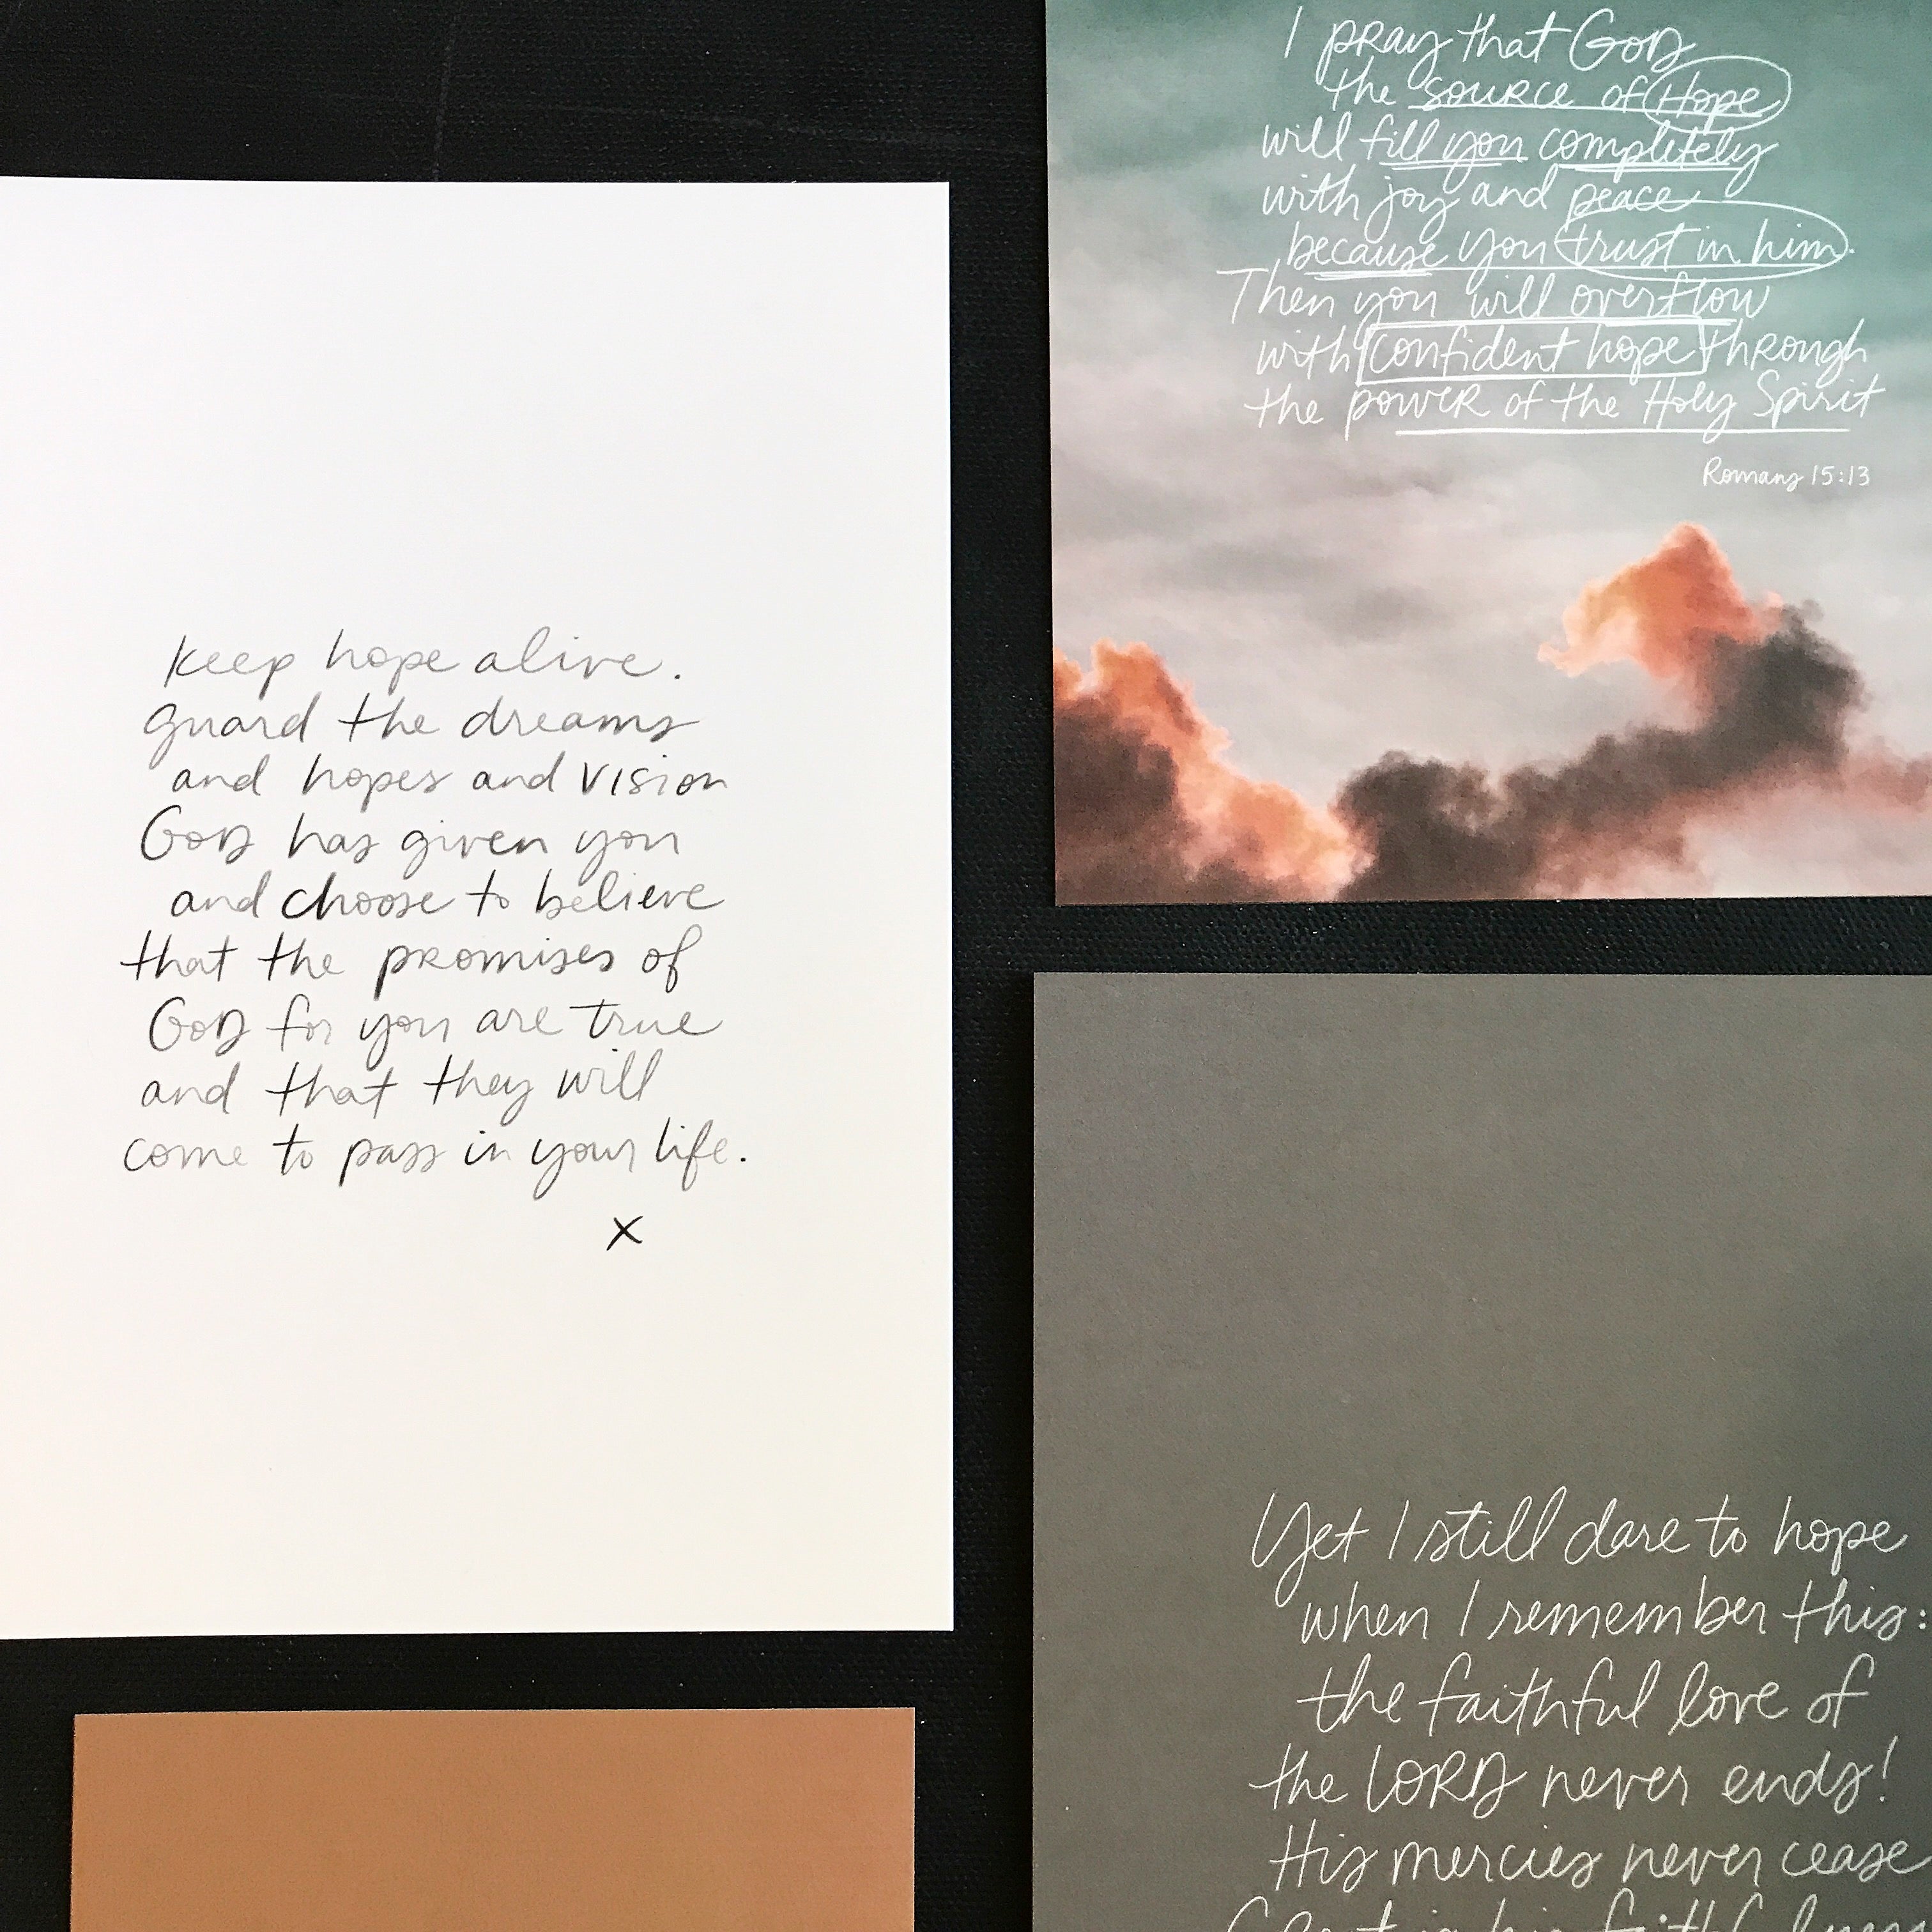 keep hope alive.
guard the dreams
and hopes and vision
GOD has given you
and choose to believe
that the promises of
GOD for you are true
and that they will
come to pass in your life.
x
I pray that GOD
the source of Hope
will fill you completely
with joy and peace
because you trust in him.
Then you will overflow
with confident hope through
the power of the Holy Spirit
Romans 15:13
Yet I still dare to hope
when I remember this:
the faithful love of
the LORD never ends!
His mercies never cease
Great is his faithfulness